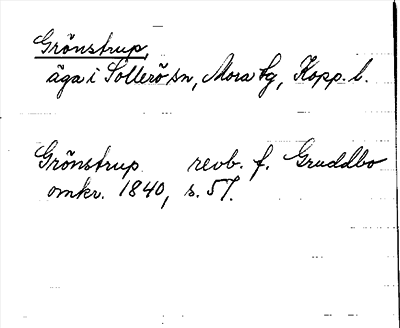 Grönstrup,
äga i Sollerö sn, Mora tg, Kopp. l.
Grönstrup revb. f. Gruddbo
omkr. 1840, s. 57.